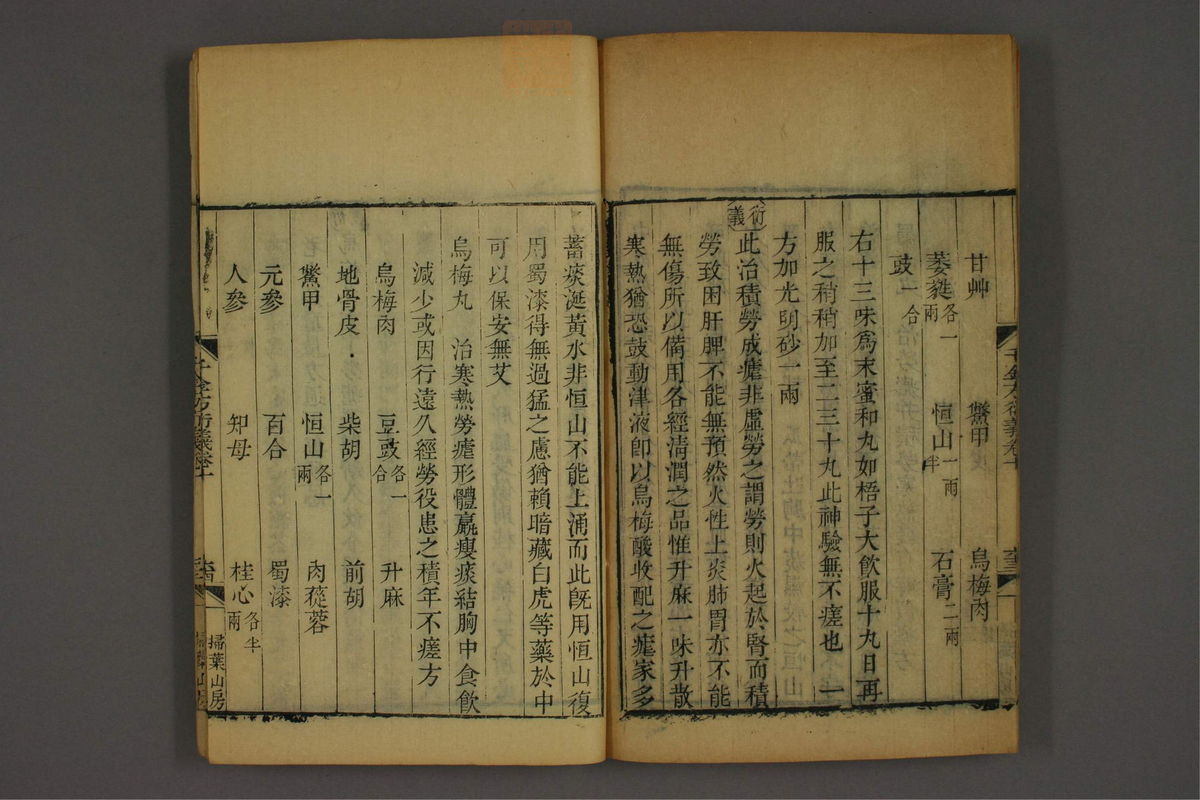 甘艸　鱉甲　烏梅肉
萎蕤各一兩　恒山一兩半　石膏二兩
豉一合
右十三味爲末蜜和丸如梧子大飲服十丸日再
服之稍稍加至二三十丸此神驗無不瘥也　一
方加光明砂一兩
衍義
此治積勞成瘧非虛勞之謂勞則火起於腎而積
勞致困肝脾不能無預然火性上炎肺胃亦不能
無傷所以備用各經淸潤之品惟升麻一味升散
寒熱猶恐鼓動津液卽以烏梅酸收配之瘧家多
蓄痰涎黃水非恒山不能上涌而此旣用恒山復
用蜀漆得無過猛之慮猶賴暗藏白虎等藥於中
可以保安無艾
烏梅丸　治寒熱勞瘧形體羸瘦痰結胸中食飲
減少或因行遠久經勞役患之積年不瘥方
烏梅肉　豆豉各一合　升麻
地骨皮　柴胡　前胡
鱉甲　恒山各一兩　肉蓯蓉
元參　百合　蜀漆
人參　知母　桂心各半兩
千金方衍義卷十
掃葉山房